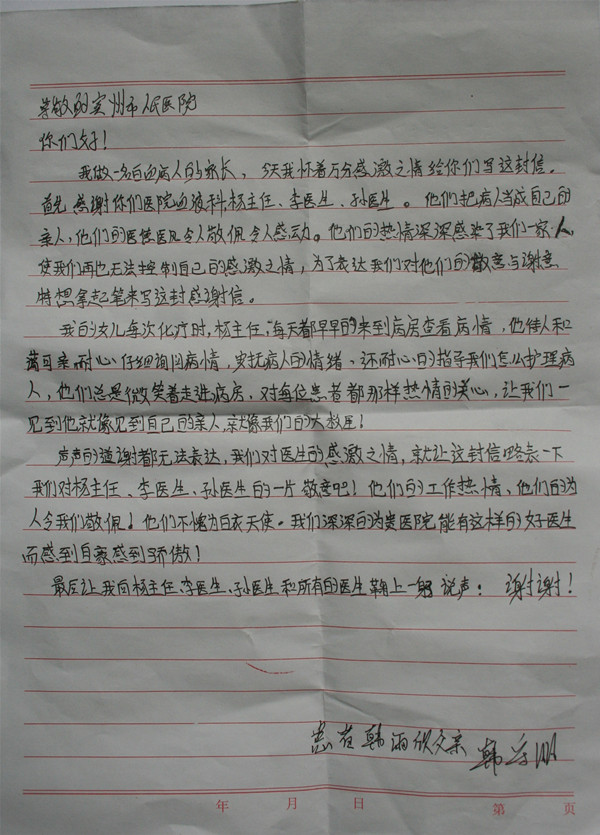 尊敬的滨州市人民医院
你们好！
我做一名白血病人的家长，今天我怀着万分感激之情给你们写这封信。
首先感谢你们医院血液科杨主任、李医生、孙医生。他们把病人当成自己的
亲人，他们的医德医风令人敬佩令人感动。他们的热情深深感染了我们一家人，
使我们再也无法控制自己的感激之情，为了表达我们对他们的敬意与谢意
特想拿起笔来写这封感谢信。
我的女儿每次化疗时，杨主任，每天都早早的来到病房查看病情，他待人和
蔼可亲耐心仔细询问病情，安抚病人的情绪、还耐心的指导我们怎么护理病
人，他们总是微笑着走进病房，对每位患者都那样热情的关心，让我们一
见到他就像见到自己的亲人，就像我们的大救星！
声声的道谢都无法表达，我们对医生的感激之情，就让这封信略表一下
我们对杨主任、李医生、孙医生的一片敬意吧！他们的工作热情，他们的为
人令我们敬佩！他们不愧为白衣天使。我们深深的为贵医院能有这样的好医生
而感到自豪感到骄傲！
最后让我向杨主任、李医生、孙医生和所有的医生鞠上一躬说声：谢谢！
患者韩雨欣父亲 韩
年 月 日 第 页